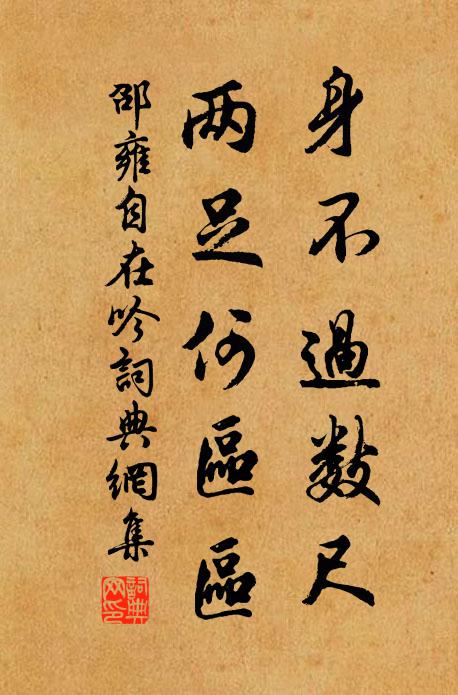 身不過數尺
两足何區區
邵雍自在吟詞典網集
詞典網印